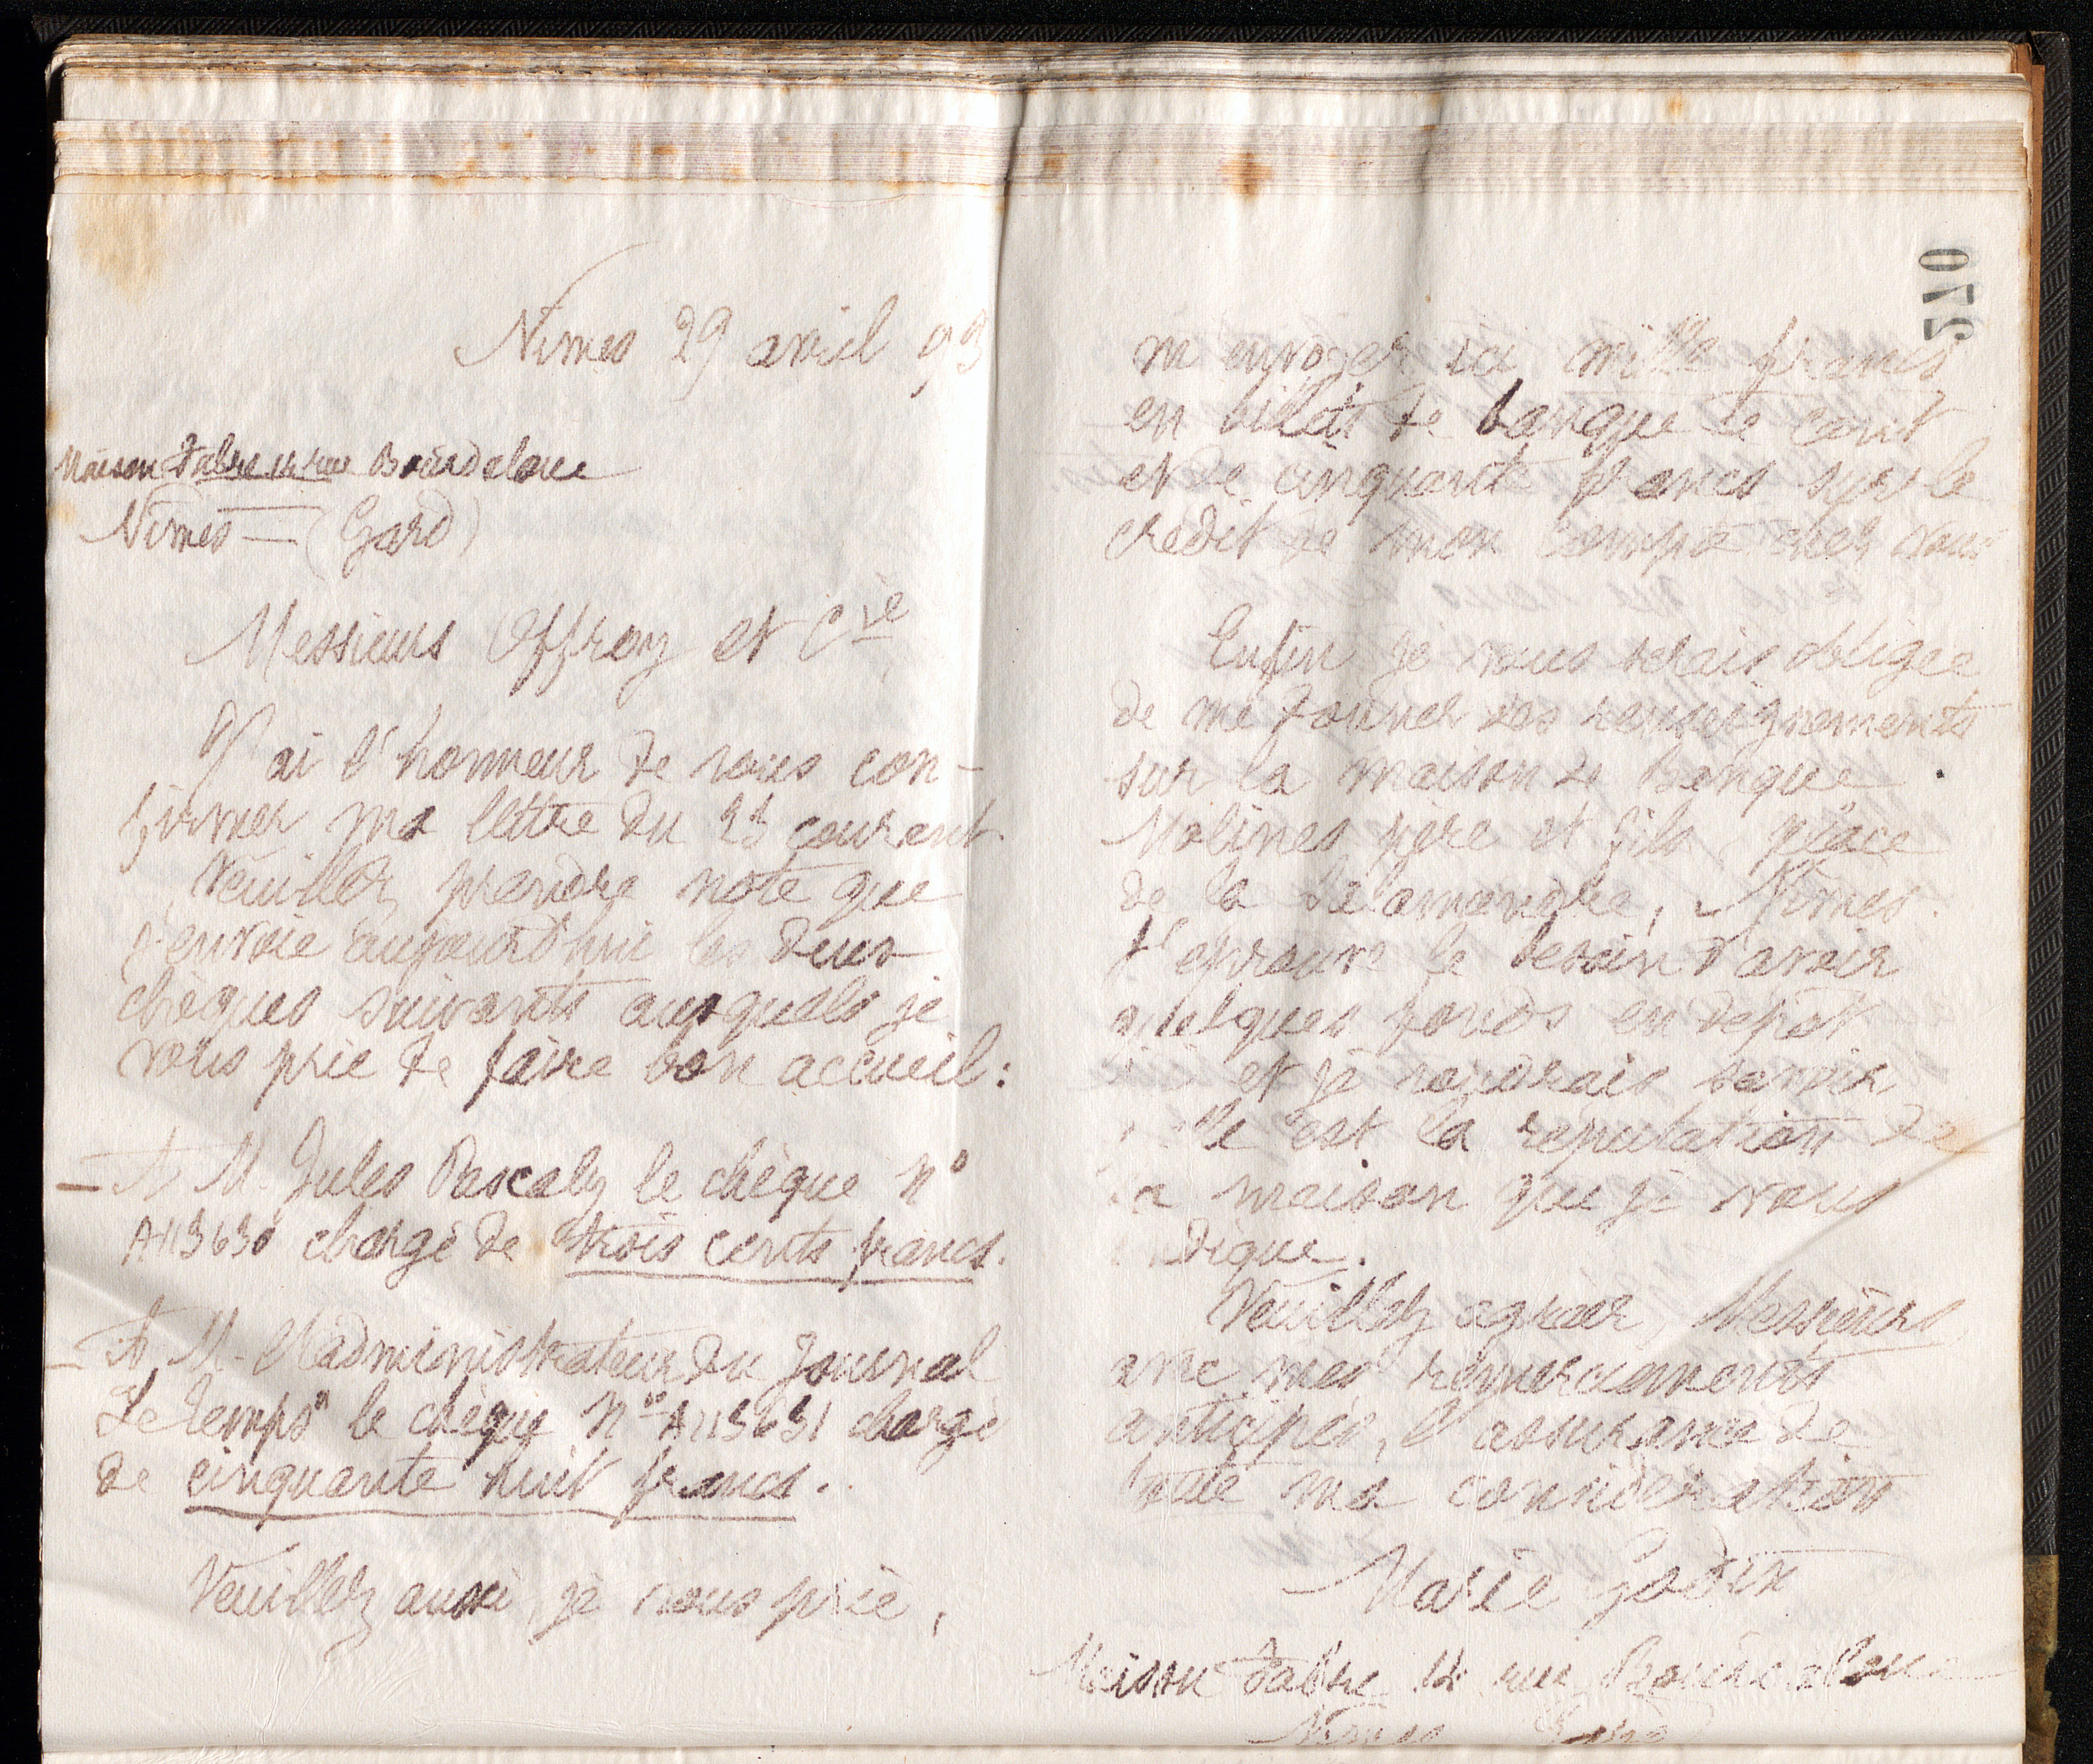 Nimes 29 avril 93
Maison Fabre 14 rue Bourdaloue
Nimes — (Gard)
Messieurs Offroy et Cie
J'ai l'honneur de vous con-
firmer ma lettre du 23 courant.
Veuillez prendre note que
j'envoie aujourd'hui les deux
chèques suivants auxquels je
vous prie de faire bon accueil:
— A M. Jules Pascaly le chèque n°
A113630 chargé de trois cents francs.
— A M. l'administrateur du Journal
"Le temps" le chèque n° A113631 chargé
de cinquante huit francs.
Veuillez aussi, je vous prie,
270
m'envoyer ici mille francs
en billets de banque de cent
et de cinquante francs sur le
crédit de mon compte chez vous
Enfin je vous serais obligée
de me donner des renseignements
sur la maison de Banque
Molines père et fils, place
de la Salamandre, Nîmes.
J'éprouve le besoin d'avoir
quelques fonds en dépôt
et je voudrais savoir
lle est la réputation de
la maison que je vous
indique.
Veuillez agréer, Messieurs,
avec mes remerciements
anticipés, l'assurance de
toute ma considération
Marie Godin
Maison Fabre 14 rue Bourdaloue
Nimes (Gard)